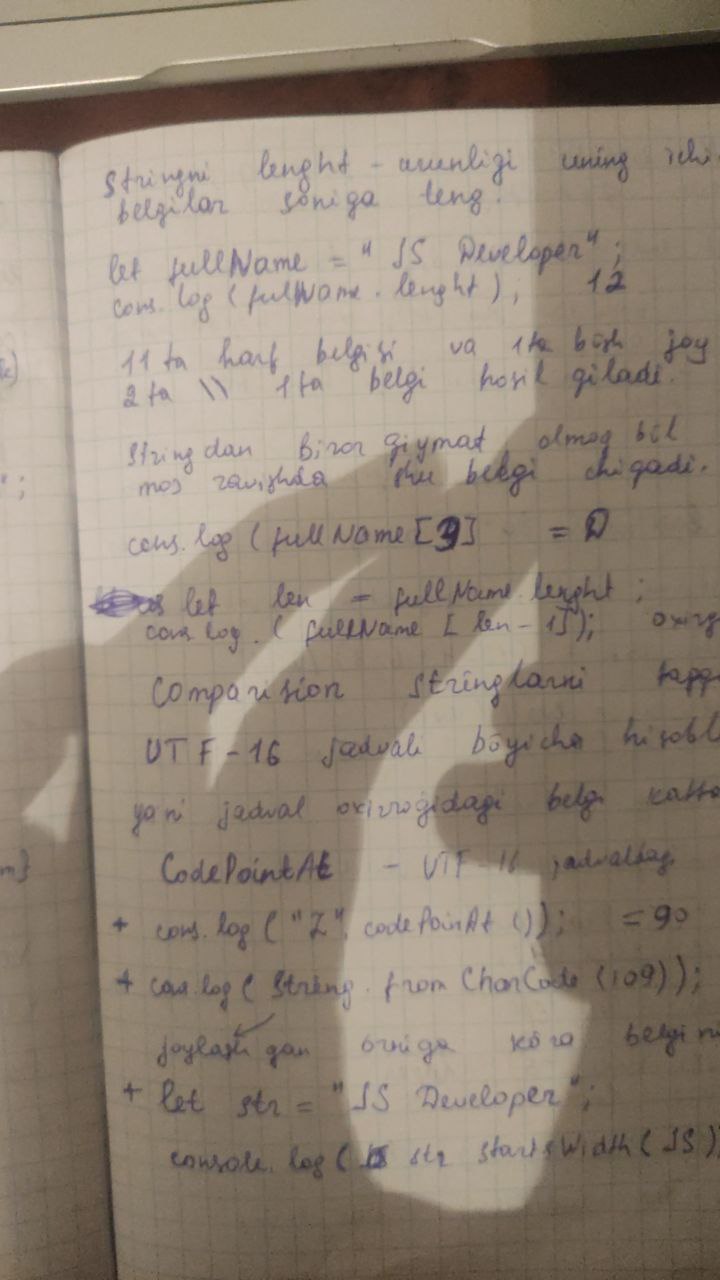 Stringni lenght - uzunligi uning ichi
belgilar soniga teng.
let fullName = "JS Developer" ;
cons.log ( fulName . lenght ) ; 12
11 ta harf belgisi va 1 ta bosh joy
2 ta \\ 1 ta belgi hosil qiladi.
String dan biror qiymat olmoq bol
mos ravishda shu belgi chiqadi.
cons. log ( full Name [3] = D
let len = fullName. lenght ;
cons log . ( fullName [ len - 1]); oxirg
Comparision stringlarni taqq
UTF-16 jadvali bōyicha hisobl
yani jadval oxirrogidagi belgi katta
CodePointAt - UTF 16 jadvaldag
+ cons. log ( "Z". codePoinAt ()); = 90
+ cons.log ( String . from CharCode (109));
joylashgan orniga kōra belgini
+ let str = "JS Developer";
console. log ( str startsWidth ( JS )
m}
";